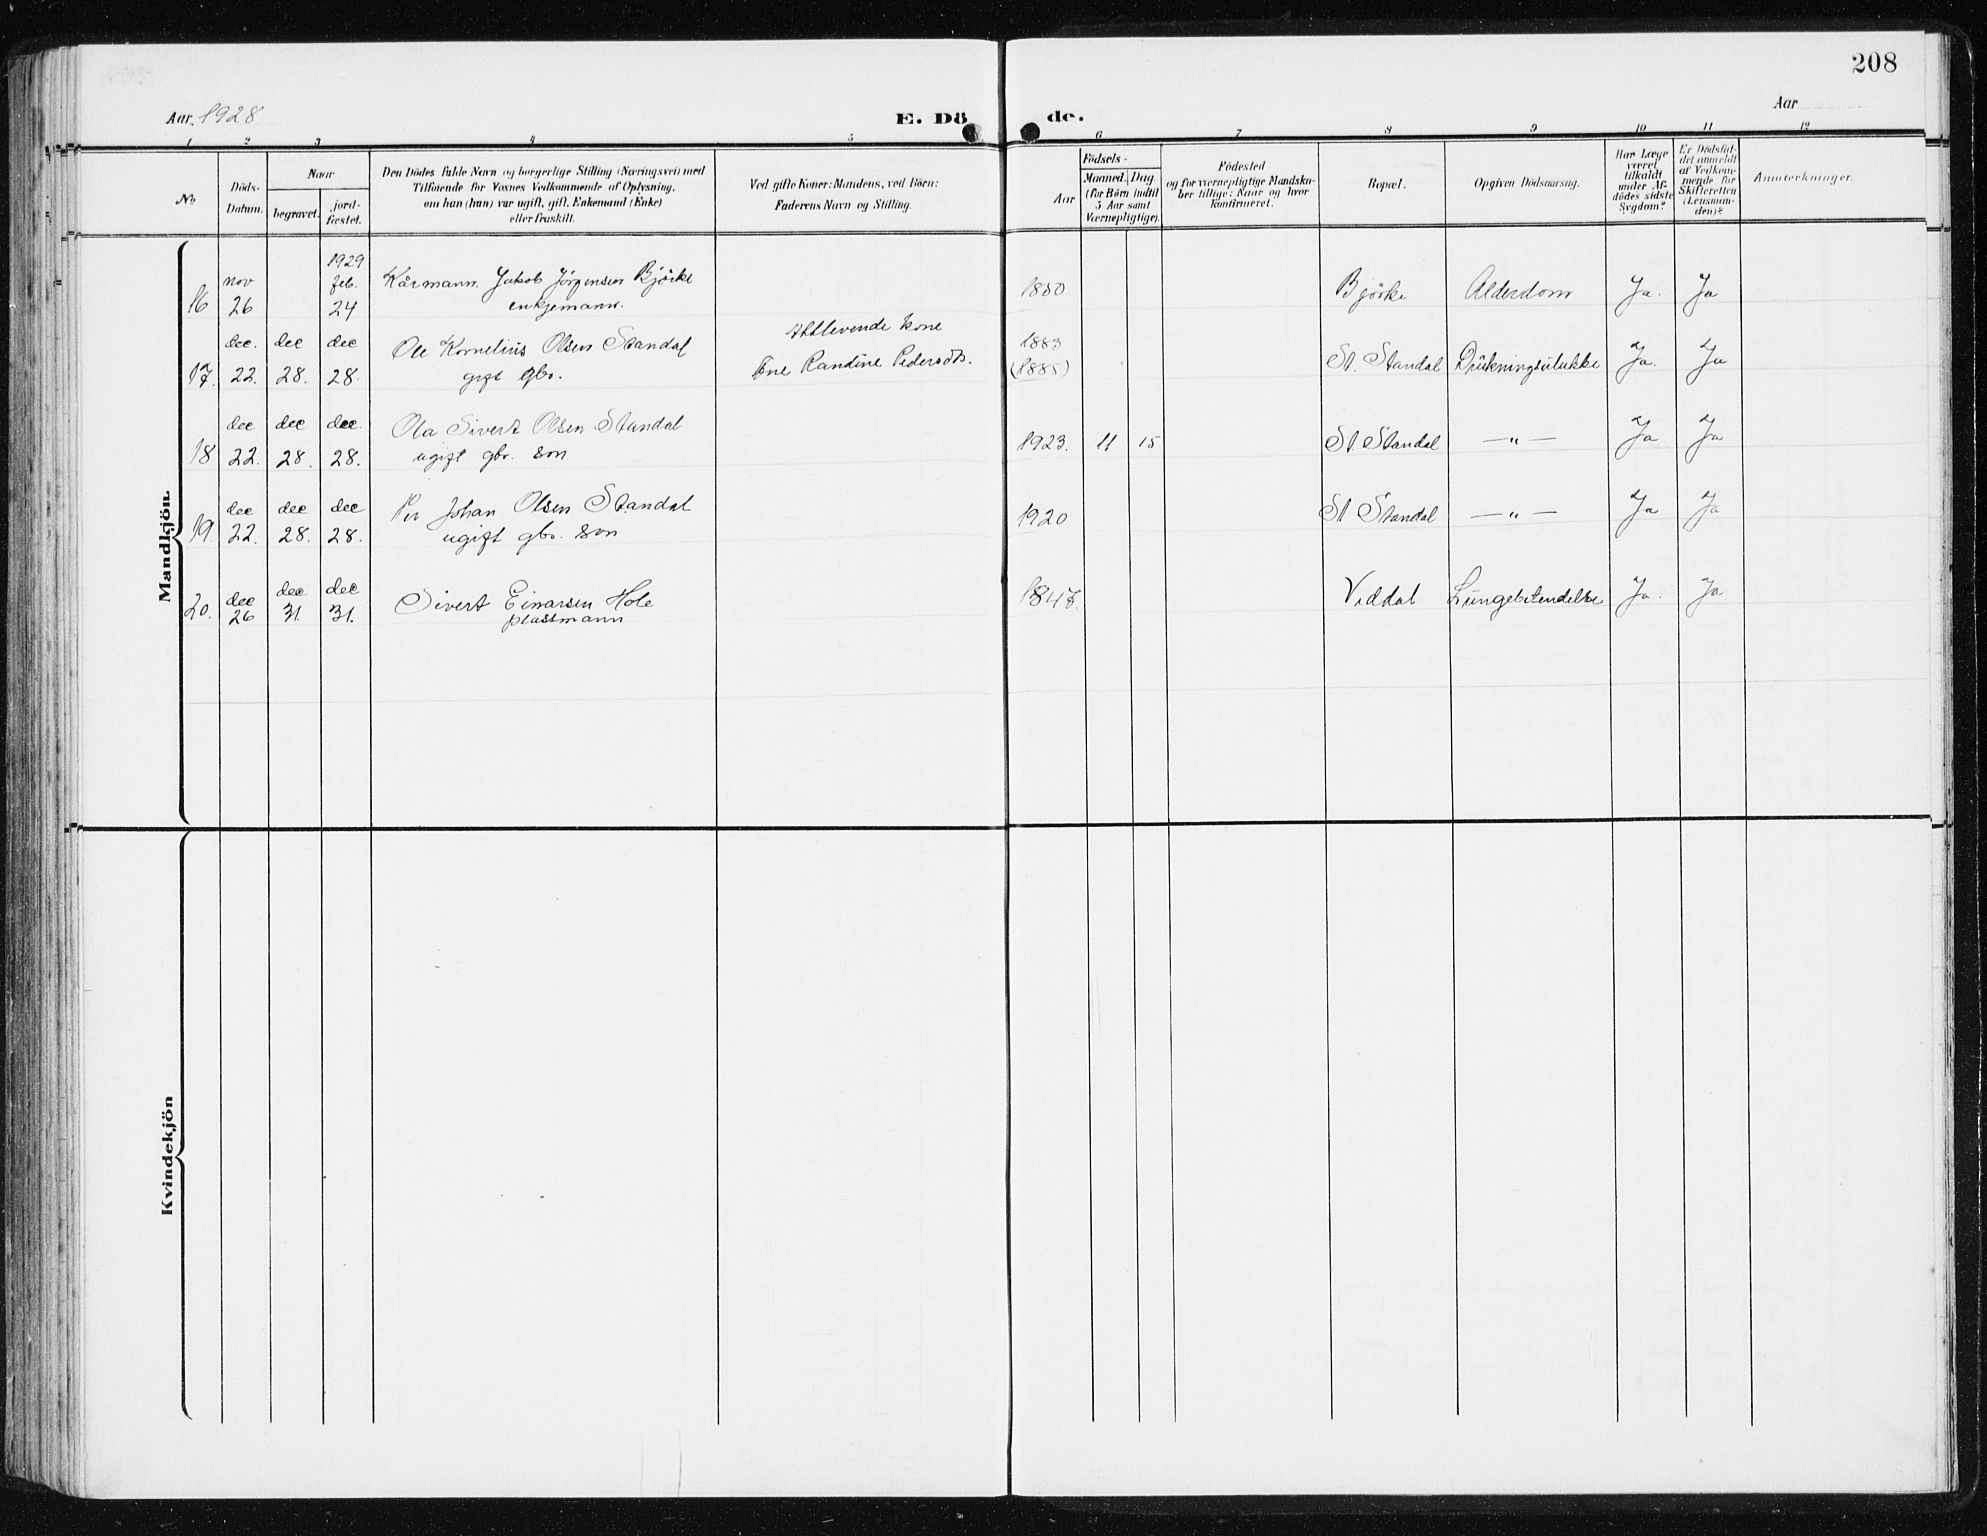 208
Aar 1928
E. Dö
de.
Aar
1 2 3 4 5 6 7 8 9 10 11 12
No
Döds-
Datum.
Naar
begravet.
jord-
fæstet.
Den Dödes fulde Navn og borgerlige Stilling (Næringsvei) med
Tilföiende for Voxnes Vedkommende af Oplysning,
om han (hun) var ugift, gift, Enkemand (Enke)
eller fraskilt.
Ved gifte Koner: Mandens, ved Börn:
Faderens Navn og Stilling.
Födsels-
Aar
Maaned. Dag
(for Börn indtil
5 Aar samt
Værnepligtige).
Födested
og for værnepligtige Mandska-
ber tillige: Naar og hvor
konfirmeret.
Bopæl.
Opgiven Dödsaarsag.
Har Læge
været
tilkaldt
under Af-
dödes sidste
Sygdom?
Er Dödsfal-
det anmeldt
af Vedkom-
mende for
Skifteretten
(Lensman-
den)?
Anmærkninger.
Mandkjön.
16 nov 26 1929 feb. 24 Kårmann Jakob Jörgensen Björke
enkjemann. 1850 Björke Alderdom Ja. Ja
17. dec. 22. dec 28. dec 28. Ole Kornelius Olsen Standal
gift gbr. Attlevende kone
Ane Randine Pedersdt. 1883
(1885) St. Standal Drukningsulukke Ja. Ja
18 dec 22. dec 28. dec. 28. Ola Sivert Olsen Standal
ugift gbr. son 1923. 11 15 St. Standal — " — Ja Ja
19. dec 22. dec 28. dec 28. Per Johan Olsen Standal
ugift gbr. son 1920 St Standal — " — Ja Ja
20. dec 26 dec 31. dec 31. Sivert Einarsen Hole
plassmann 1847. Viddal Lungebetendelse Ja. Ja
Kvindekjön